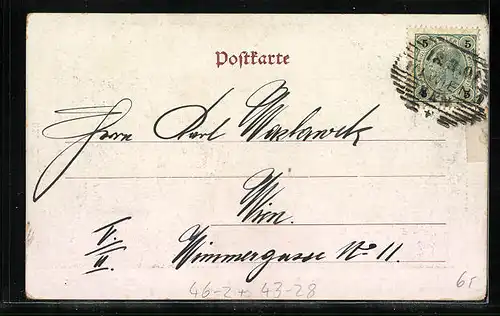 Postkarte
5 5
Herrn Karl Waslawek
Wien.
IV./II. Wimmergasse No 11.
46-2+ 43-28
6,-